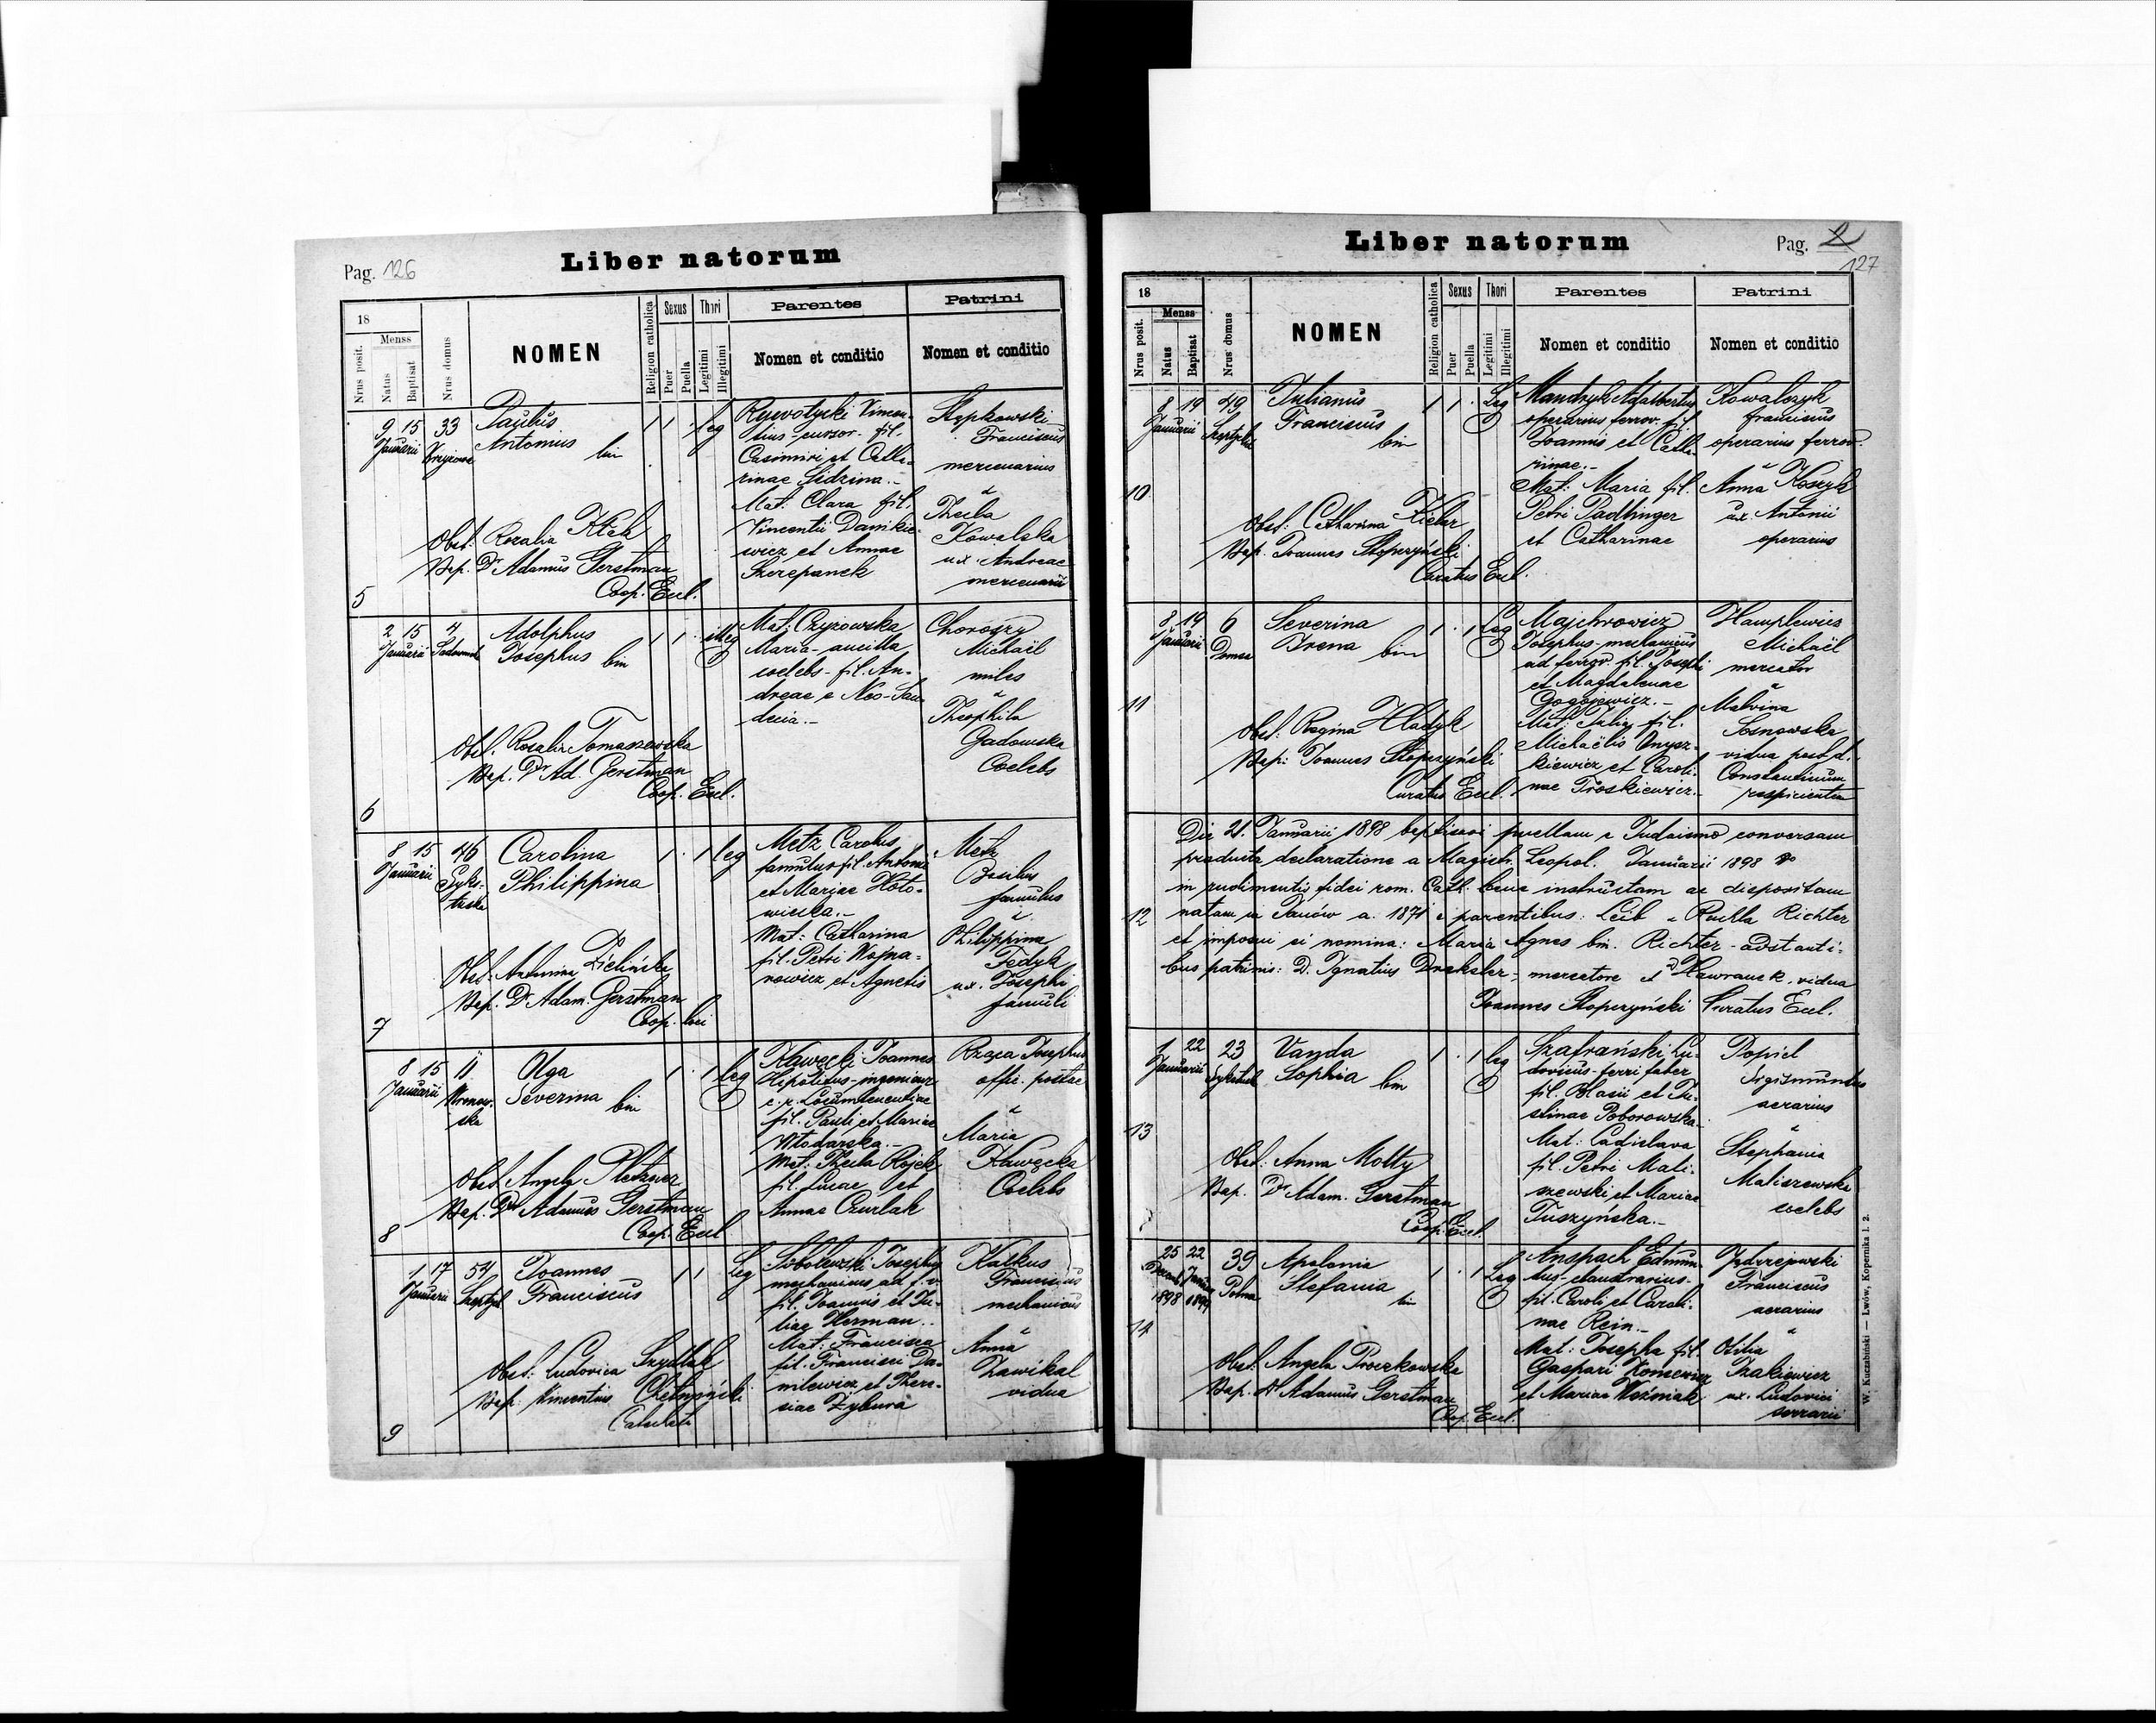 Liber natorum
Pag. 126
18
Menss
Nrus posit.
Natus
Baptisat
Nrus domus
NOMEN
Religion catholica
Sexus
Puer
Puella
Thori
Legitimi
Illegitimi
Parentes
Nomen et conditio
Patrini
Nomen et conditio
5
9 15 33
Januarii
Paulus
Antonius bin
1 1 leg
Obst. Rozalia
Bap. Dr Adamus Gerstman
Coop. Eccl.
Vincen-
tius - cursor. fil.
Casimiri et Catha-
rinae Sidzina.-
Mat: Clara fil.
Vincentii Danikie-
wicz et Annae
Szczepanek
Stepkowski
Franciscus
mercenarius
&
Thecla
Kowalska
ux. Andreae
mercenarii
6
2 15 4
Januarii
Adolphus
Josephus bin
1 1 illeg
Obst. Rosalia Tomaszewska
Bap. Dr Ad. Gerstman
Coop. Eccl.
Mat: Czyzowska
Maria - ancilla,
coelebs - fil. An-
dreae e Neo-San-
decia.-
Choroszy
Michaël
miles
&
Theophila
Gadowska
Coelebs
7
8 15 46
Januarii
Syks-
tuska
Carolina
Philippina
1 1 leg
Obst. Antonina Zielińska
Bap. Dr Adam. Gerstman
Coop. loci
Metz Carolus
famulus fil. Antonii
et Mariae Hoto-
wiecka.-
Mat: Catharina
fil. Petri Wojna-
nowicz et Agnetis
Metz
Basilius
famulus
&
Philippina
Fedyk
ux. Josephi
famuli
8
8 15 11
Januarii
Wronow-
ska
Olga
Severina bin
1 1 leg
Obst. Angela Pletzner
Bap. Dr Adamus Gerstman
Coop. Eccl
Kawęcki Joannes
Hipolitus - ingenieur
c. r. Locumtenentiae
fil. Pauli et Mariae
Włodarska.-
Mat: Thecla Rojek
fil. Lucae et
Annae Czurlak
Rzaca Josephus
offic. postae
&
Maria
Kawęcka
Coelebs
9
1 17 54
Januarii
Szeptyck
Joannes
Franciscus
1 1 Leg
Obst: Ludovica Szydlak
Bap: Vincentius
Catecheta
Sobolewski Josephus
mechanicus ad f. v.
fil. Joannis et Ju-
liae Herman.-
Mat: Francisca
fil. Francisci Da-
nilewicz et There-
siae Zybura
Kalkus
Franciscus
mechanicus
&
Anna
Zawikal
vidua
Liber natorum
Pag. 2
127
18
Menss
Nrus posit.
Natus
Baptisat
Nrus domus
NOMEN
Religion catholica
Sexus
Puer
Puella
Thori
Legitimi
Illegitimi
Parentes
Nomen et conditio
Patrini
Nomen et conditio
10
8 19 49
Januarii
Szeptyckich
Julianus
Franciscus
bin
1 1 Leg
Obst: Catharina Kielar
Bap. Joannes Stopczyński
Curatus Eccl.
Mandryk Adalbertus
operarius ferrov. fil.
Joannis et Catha-
rinae.-
Mat: Maria fil.
Petri Padlinger
et Catharinae
Kowalczyk
Franciscus
operarius ferrov.
&
Anna Koszyk
ux. Antonii
operarius
11
8 19 6
Januarii
Domsa
Severina
Irena bin
1 1 Leg
Obst. Regina Hladyk
Bap: Joannes Stopczyński
Curatus Eccl.
Majchrowicz
Josephus - mechanicus
ad ferrov. fil. Josephi
et Magdalenae
Gogojewicz.-
Mat: Julia fil.
Michaëlis Onysz-
kiewicz et Caroli-
nae Troskiewicz.-
Hamplewicz
Michaël
mercator
&
Malvina
Sosnowska
vidua post d.
Constantinum
respicientem
12
Die 21. Januarii 1898 baptisavi puellam e Judaismo conversam
producta declaratione a Magistr. Leopol. Januarii 1898
in rudimentis fidei rom. Cath. bene instructam ac dispositam
natam in Janów a. 1871 e parentibus: Leib & Ruchla Richter
et imposui ei nomina: Maria Agnes bin. Richter - adstanti-
bus patrinis: D. Ignatius Draksler - mercatore et Hawranek, vidua
Joannes Stopczyński Curatus Eccl.
13
1 22 23
Januarii
Sykstuska
Vanda
Sophia bin
1 1 leg
Obst: Anna Motty
Bap. Dr Adam. Gerstman
Coop. Eccl.
Szafrański Lu-
dovicus - ferri faber
fil. Blasii et Ju-
stinae Poborowska.-
Mat: Ladislava
fil. Petri Mali-
szewski et Mariae
Tuszyńska.-
Popiel
Sigismundus
aerarius
&
Stephania
Maliszewska
coelebs
14
25 22 39
Decemb. Januar
1898 1899
Polna
Apolonia
Stefania
bin
1 1 Leg
Obst. Angela Proczkowska
Bap. Dr Adamus Gerstman
Coop. Eccl.
Anspach Edmun-
dus - claustrarius -
fil. Caroli et Caroli-
nae Rein.-
Mat: Josepha fil.
Gaspari Koncewicz
et Mariae Woźniak
Jędrzejowski
Franciscus
aerarius
&
Otilia
Izakiewicz
ux. Ludovici
serrarii
W. Kuczabiński — Lwów, Kopernika l. 2.